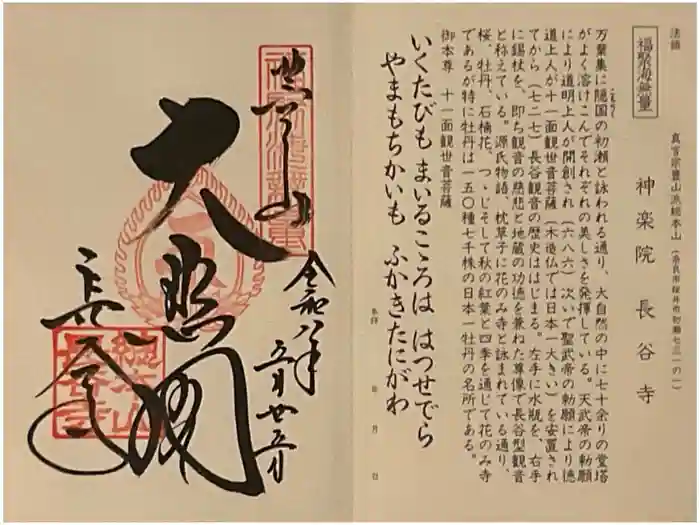 法語
福聚海無量
真言宗豊山派総本山(奈良市桜井市初瀬七三一の一)
神楽院 長谷寺
万葉集に隠国の初瀬と詠われる通り、大自然の中に七十余りの堂塔
がよく溶けこんでそれぞれの美しさを発揮している。天武帝の勅願
により道明上人が開創され(六八六)次いで聖武帝の勅願により徳
道上人が十一面観世音菩薩(木造仏では日本一大きい)を安置され
てから(七二七)長谷観音の歴史ははじまる。左手に水瓶を、右手
に錫杖を、即ち観音の慈悲と地蔵の功徳を兼ねた尊像で長谷型観音
と称えている。源氏物語、枕草子に花のみ寺と詠まれている通り、
桜、牡丹、石楠花、つゝじそして秋の紅葉と四季を通じて花のみ寺
であるが特に牡丹は一五〇種七千株の日本一牡丹の名所である。
御本尊 十一面観世音菩薩
いくたびも まいるこゝろは はつせでら
やまもちかいも ふかきたにがわ
年 月 日
令和八年
五月廿五日
大悲閣
長谷寺
総本山
長谷寺